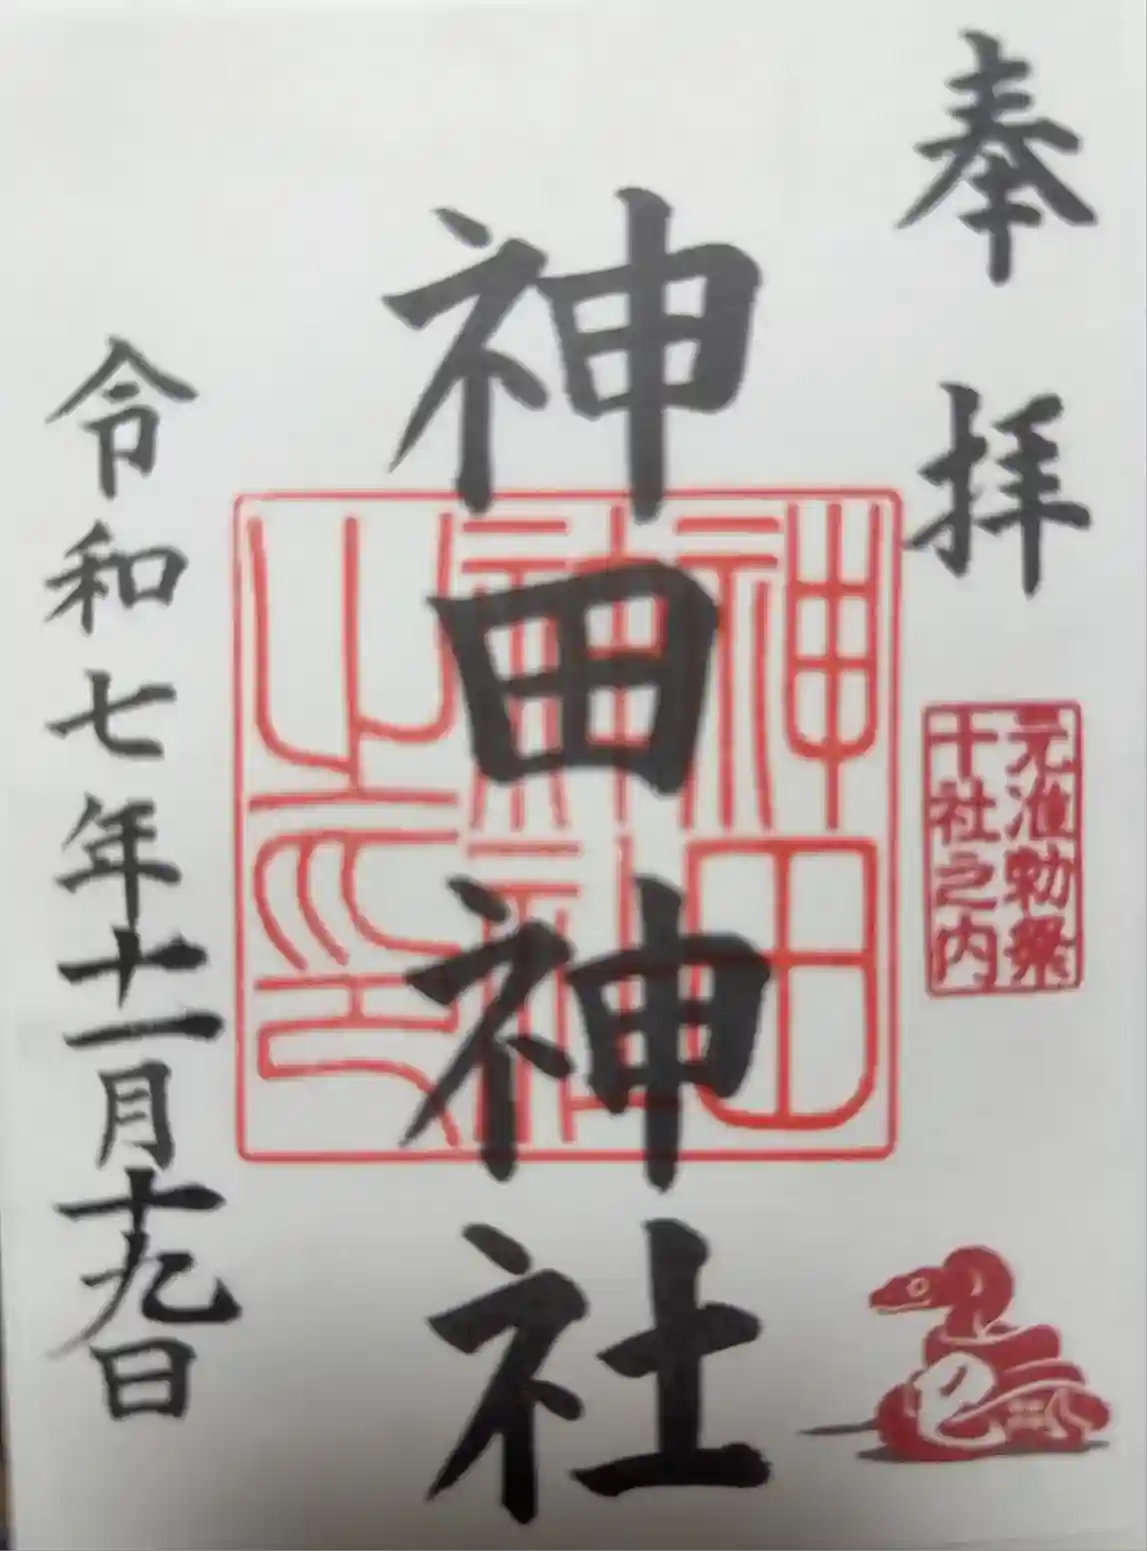 奉拝
元准勅祭
十社之内
神田神社
神田
神社
之印
令和七年十一月十九日
巳